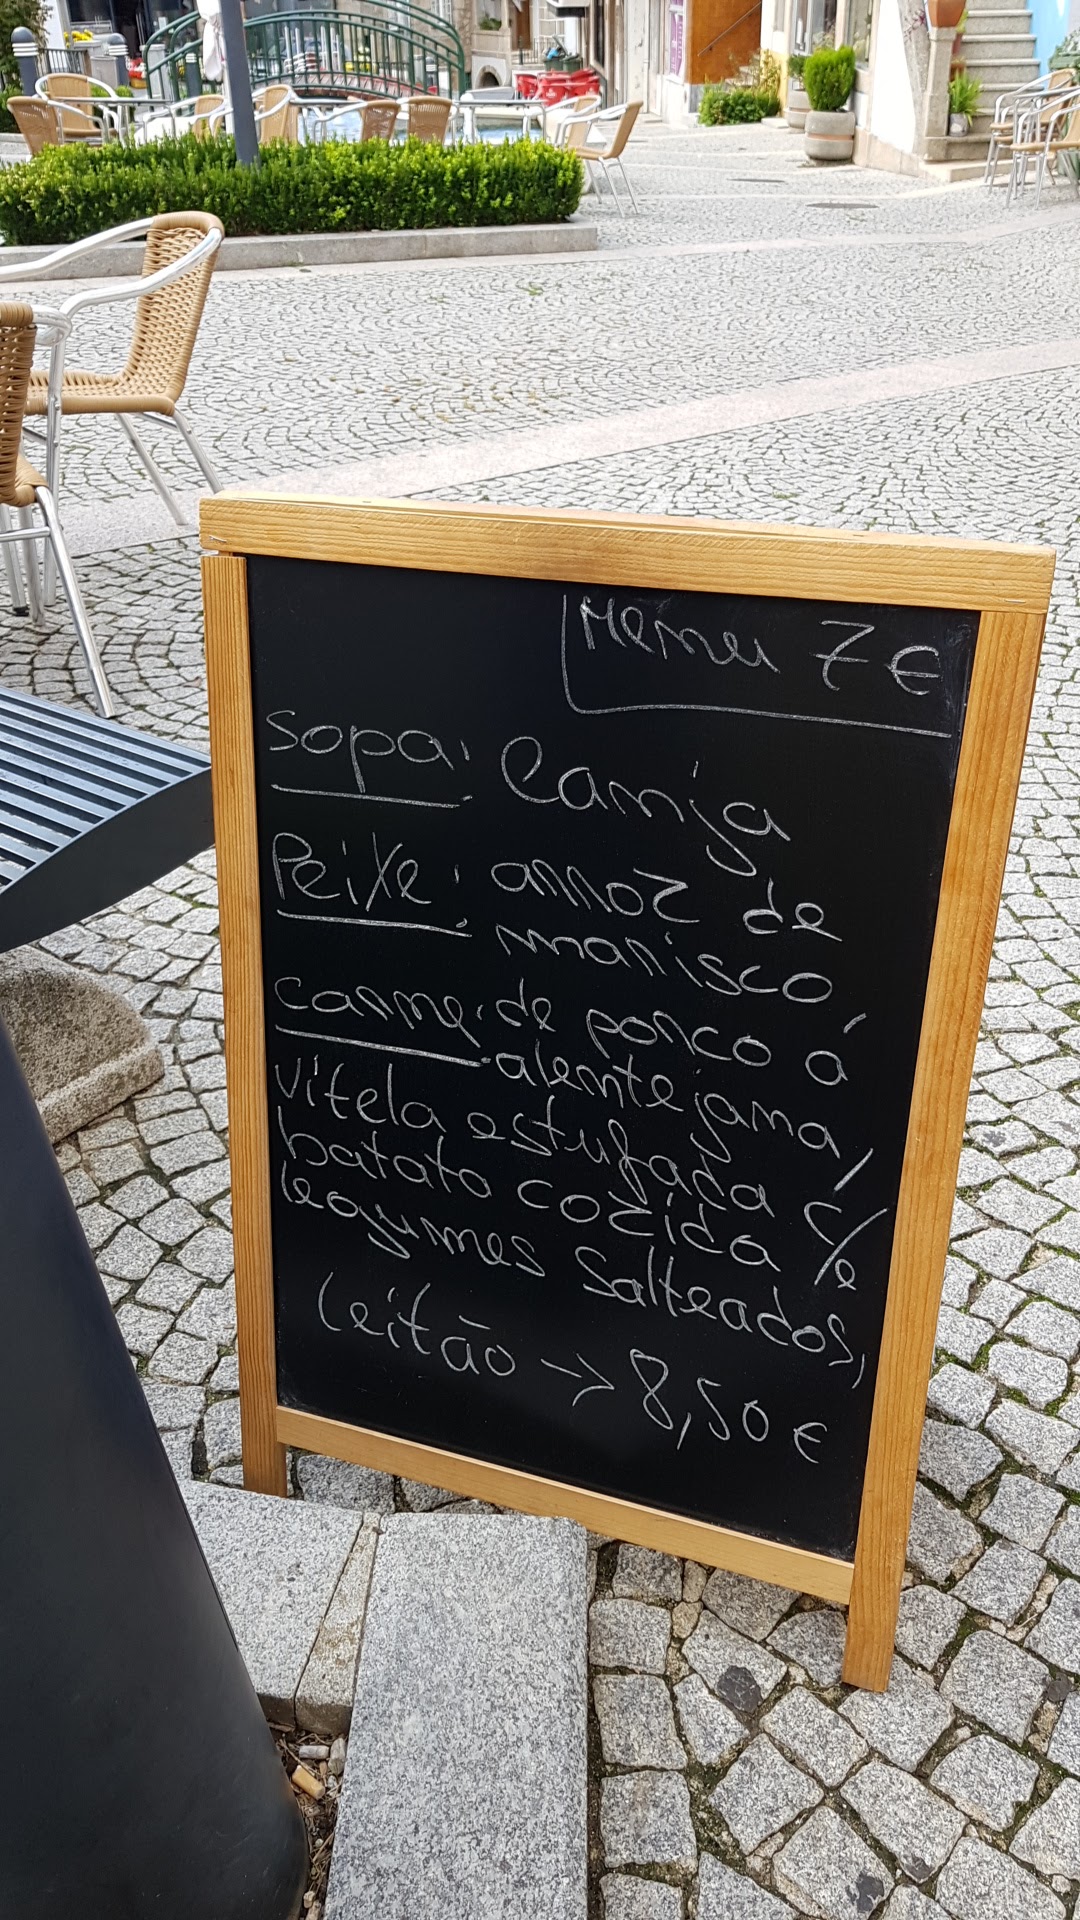 Menu 7€
Sopa: Canja
Peixe: arroz de
marisco
carne: de porco á
alentejana /
vitela estufada c/
batata cozida e
legumes salteados,
leitão → 8,50 €